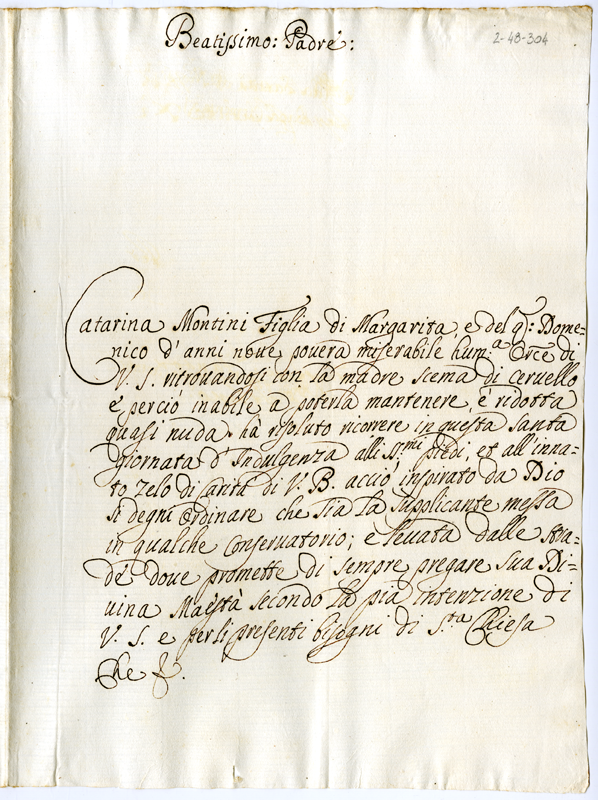 2-48-304
Beatissimo: Padre:
Catarina Montini Figlia di Margarita, e del q: Dome=
nico d'anni nove povera miserabile hum:a Orce di
V. S. ritrovandosi con la madre scema di cervello
e perciò inabile a poterla mantenere, e ridotta
quasi nuda. hà risoluto ricorrere in questa santa
giornata d'Indulgenza alli SS.mi piedi, et all'inna=
to zelo di Carità di V. B. acciò inspirato da Dio
si degni Ordinare che sia la supplicante messa
in qualche Conservatorio; e levata dalle stra=
de dove promette di sempre pregare sua Di=
uina Maestà secondo la pia intenzione di
V. S. e per li presenti bisogni di S.ta Chiesa
Che &.